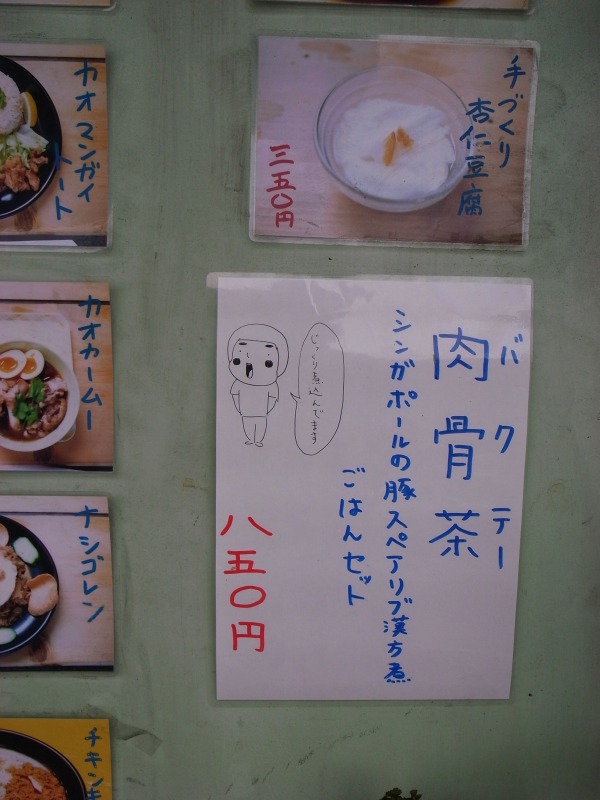 手づくり
杏仁豆腐
三五〇円
肉骨茶
バクテー
シンガポールの豚スペアリブ漢方煮
ごはんセット
じっくり煮込んでます
八五〇円
カオマンガイ
トート
カオカームー
ナシゴレン
チキンキ